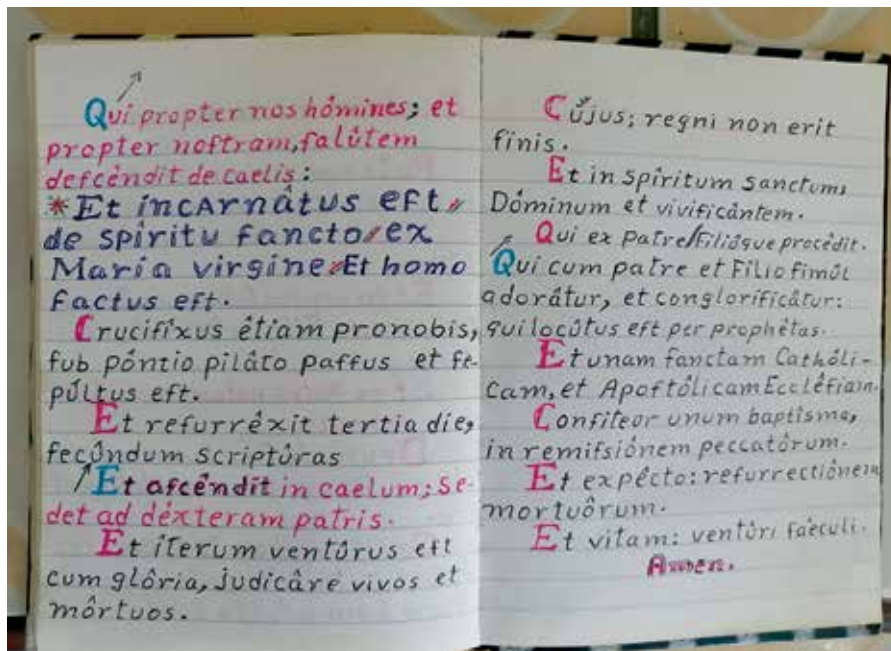 Qui propter nos hómines; et
propter noftram, falûtem
defcéndit de caelis:
*Et incArnâtus eft
de spiritu fancto ex
Maria virgine Et homo
factus eft.
Crucifixus êtiam pronobis,
fub póntio pilâto paffus et fe-
púltus eft.
Et refurrêxit tertia die,
fecûndum scriptûras
Et afcéndit in caelum; Se-
det ad déxteram patris.
Et îterum ventûrus eft
cum glôria, judicâre vivos et
môrtuos.
Cûjus; regni non erit
finis.
Et in Spîritum Sanctum,
Dóminum et vivificántem.
Qui ex Patre/Filióque procédit.
Qui cum patre et Filio fimûl
adorâtur, et conglorificâtur:
qui locûtus eft per prophêtas.
Et unam fanctam Cathóli-
cam, et Apoftólicam Ecclêfiam.
Confiteor unum baptîsma,
in remifsiónem peccatórum.
Et expêcto: refurrectiónem
mortuôrum.
Et vitam: ventûri faeculi.
Amen.